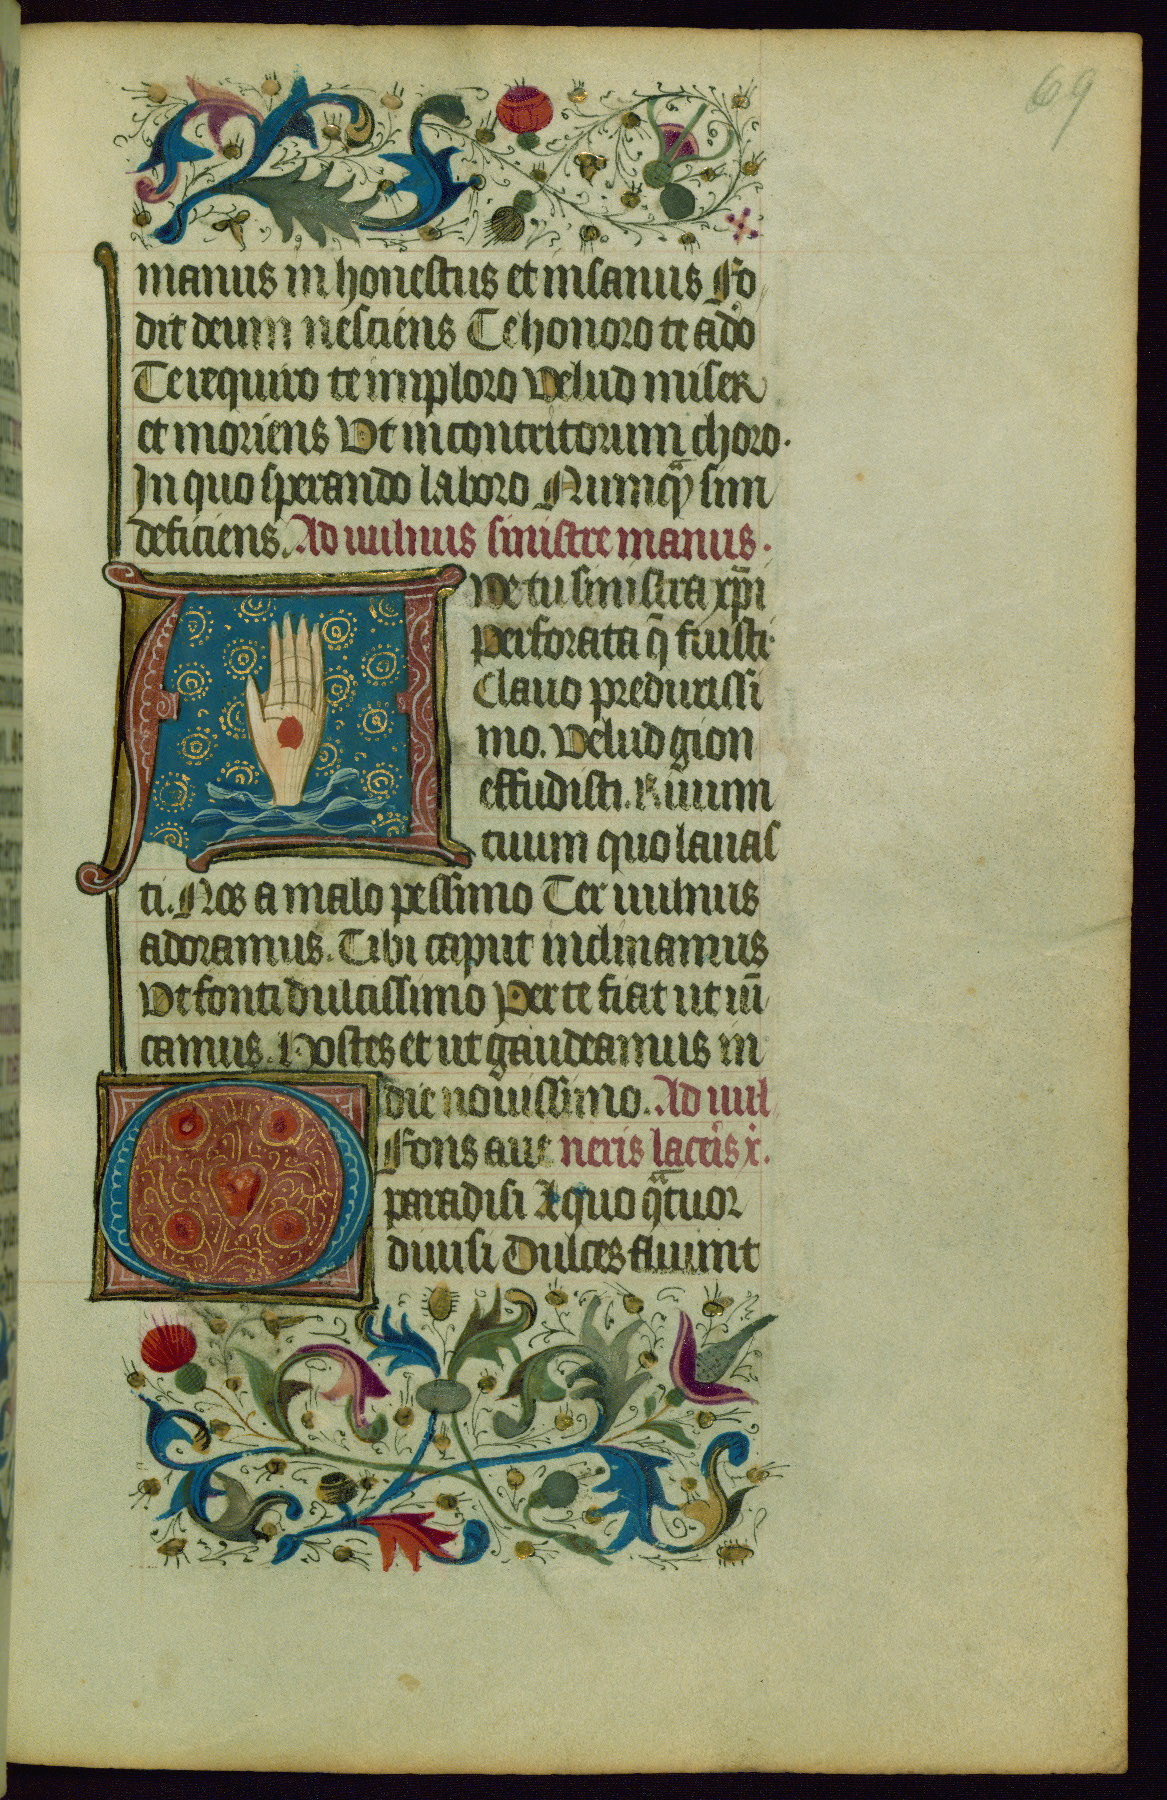 69
manus in honestus et insanus Fo
dit deum nesciens Te honoro te ado
Te requiro te imploro Velud miser
et moriens Vt in contritorum choro.
In quo sperando laboro Numqᵃ̄ sim
deficiens. Ad uulnus sinistre manus.
Ve tu sinistra xp̄i
perforata q̄ fuisti.
Clauo predurissi
mo. Velud gion
effudisti. Riuum
tuum quo lauas
ti. Nos a malo pessimo Ter uulnus
adoramus. Tibi caput inclinamus
Vt fonti dulcissimo Per te fiat ut uī
camus. Hostes et ut gaudeamus in
die nouissimo. Ad uul
Fons aue neris lateris x̄.
paradisi A quo qᵃtuor
diuisi Dulces fluunt